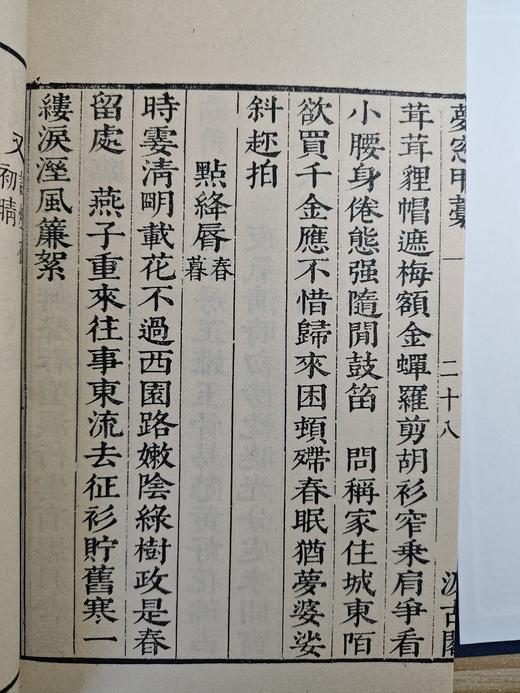 夢窓甲藁 二十八 汲古閣
茸茸貍帽遮梅額金蟬羅剪胡衫窄乘肩爭看
小腰身倦態强隨閒鼓笛　問稱家住城東陌
欲買千金應不惜歸來困頓殢春眠猶夢婆娑
斜趂拍
點絳脣 春暮
時霎清明載花不過西園路嫩陰綠樹政是春
留處　燕子重來往事東流去征衫貯舊寒一
縷淚溼風簾絮
又 初晴